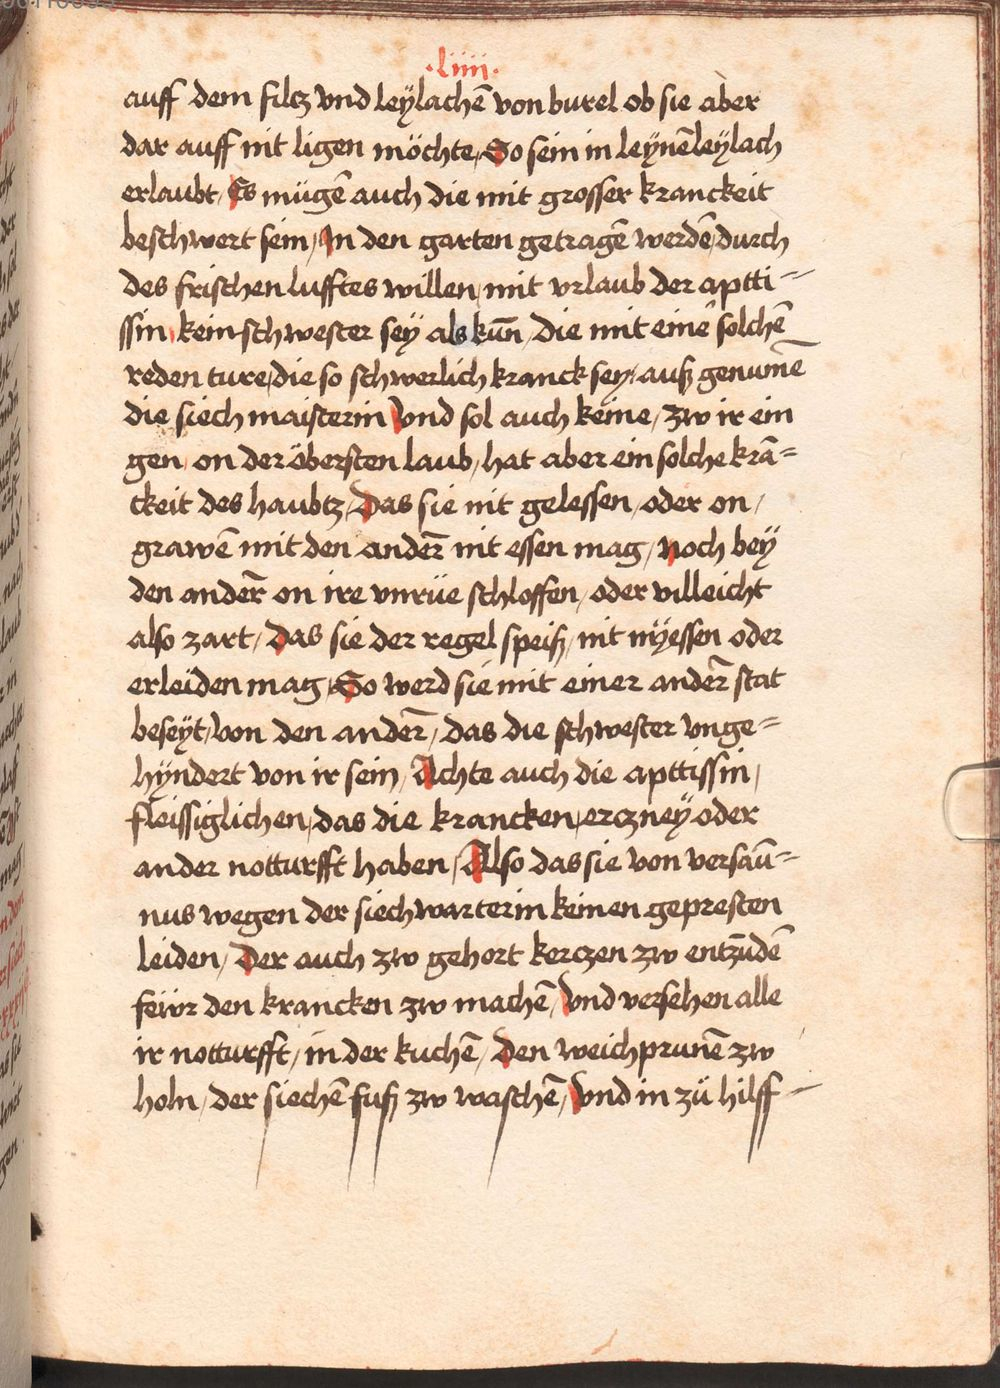 ·liiii·
auff dem filcz vnd leÿlachē von burel ob sie aber
dar auff nit ligen möchte, So sein in leynē leÿlach
erlaubt, Es mügē auch die mit grosser kranckeit
beschwert sein, In den garten getragē werdē, durch
des frischen lufftes willen, mit vrlaub der aptti=
ssin, kein schwester seÿ als kün̄, die mit einē solchē
reden türe, die so schwerlich kranck sey, auß genumē
die siech maisterin Vnd sol auch keine, zw ir ein
gen, on der öbersten laub, hat aber ein solche krā=
ckeit des haubtz, Das sie nit gelessen, oder on,
grawē mit denander̄ nit essen mag, noch beÿ
den ander̄ on ire vnrüe schloffen, oder villeicht
also zart, das sie der regel speiß, nit nÿessen oder
erleiden mag, So werd sie mit einer ander̄ stat
beseÿt, von den ander̄, das die schwester vnge=
hÿndert von ir sein, Achte auch die apttissin,
fleissiglichen, das die krancken, erczneÿ oder
ander notturfft haben, Also das sie von versaū=
nus wegen der siechwarterin keinen gepresten
leiden, Der auch zw gehort kerczen zw entzūdē
feẅr den krancken zw machē, Vnd versehen alle
ir notturfft, in der kuchē, Den weichprunē zw
holn, der siechē fuß zw waschē, Vnd in zü hilff